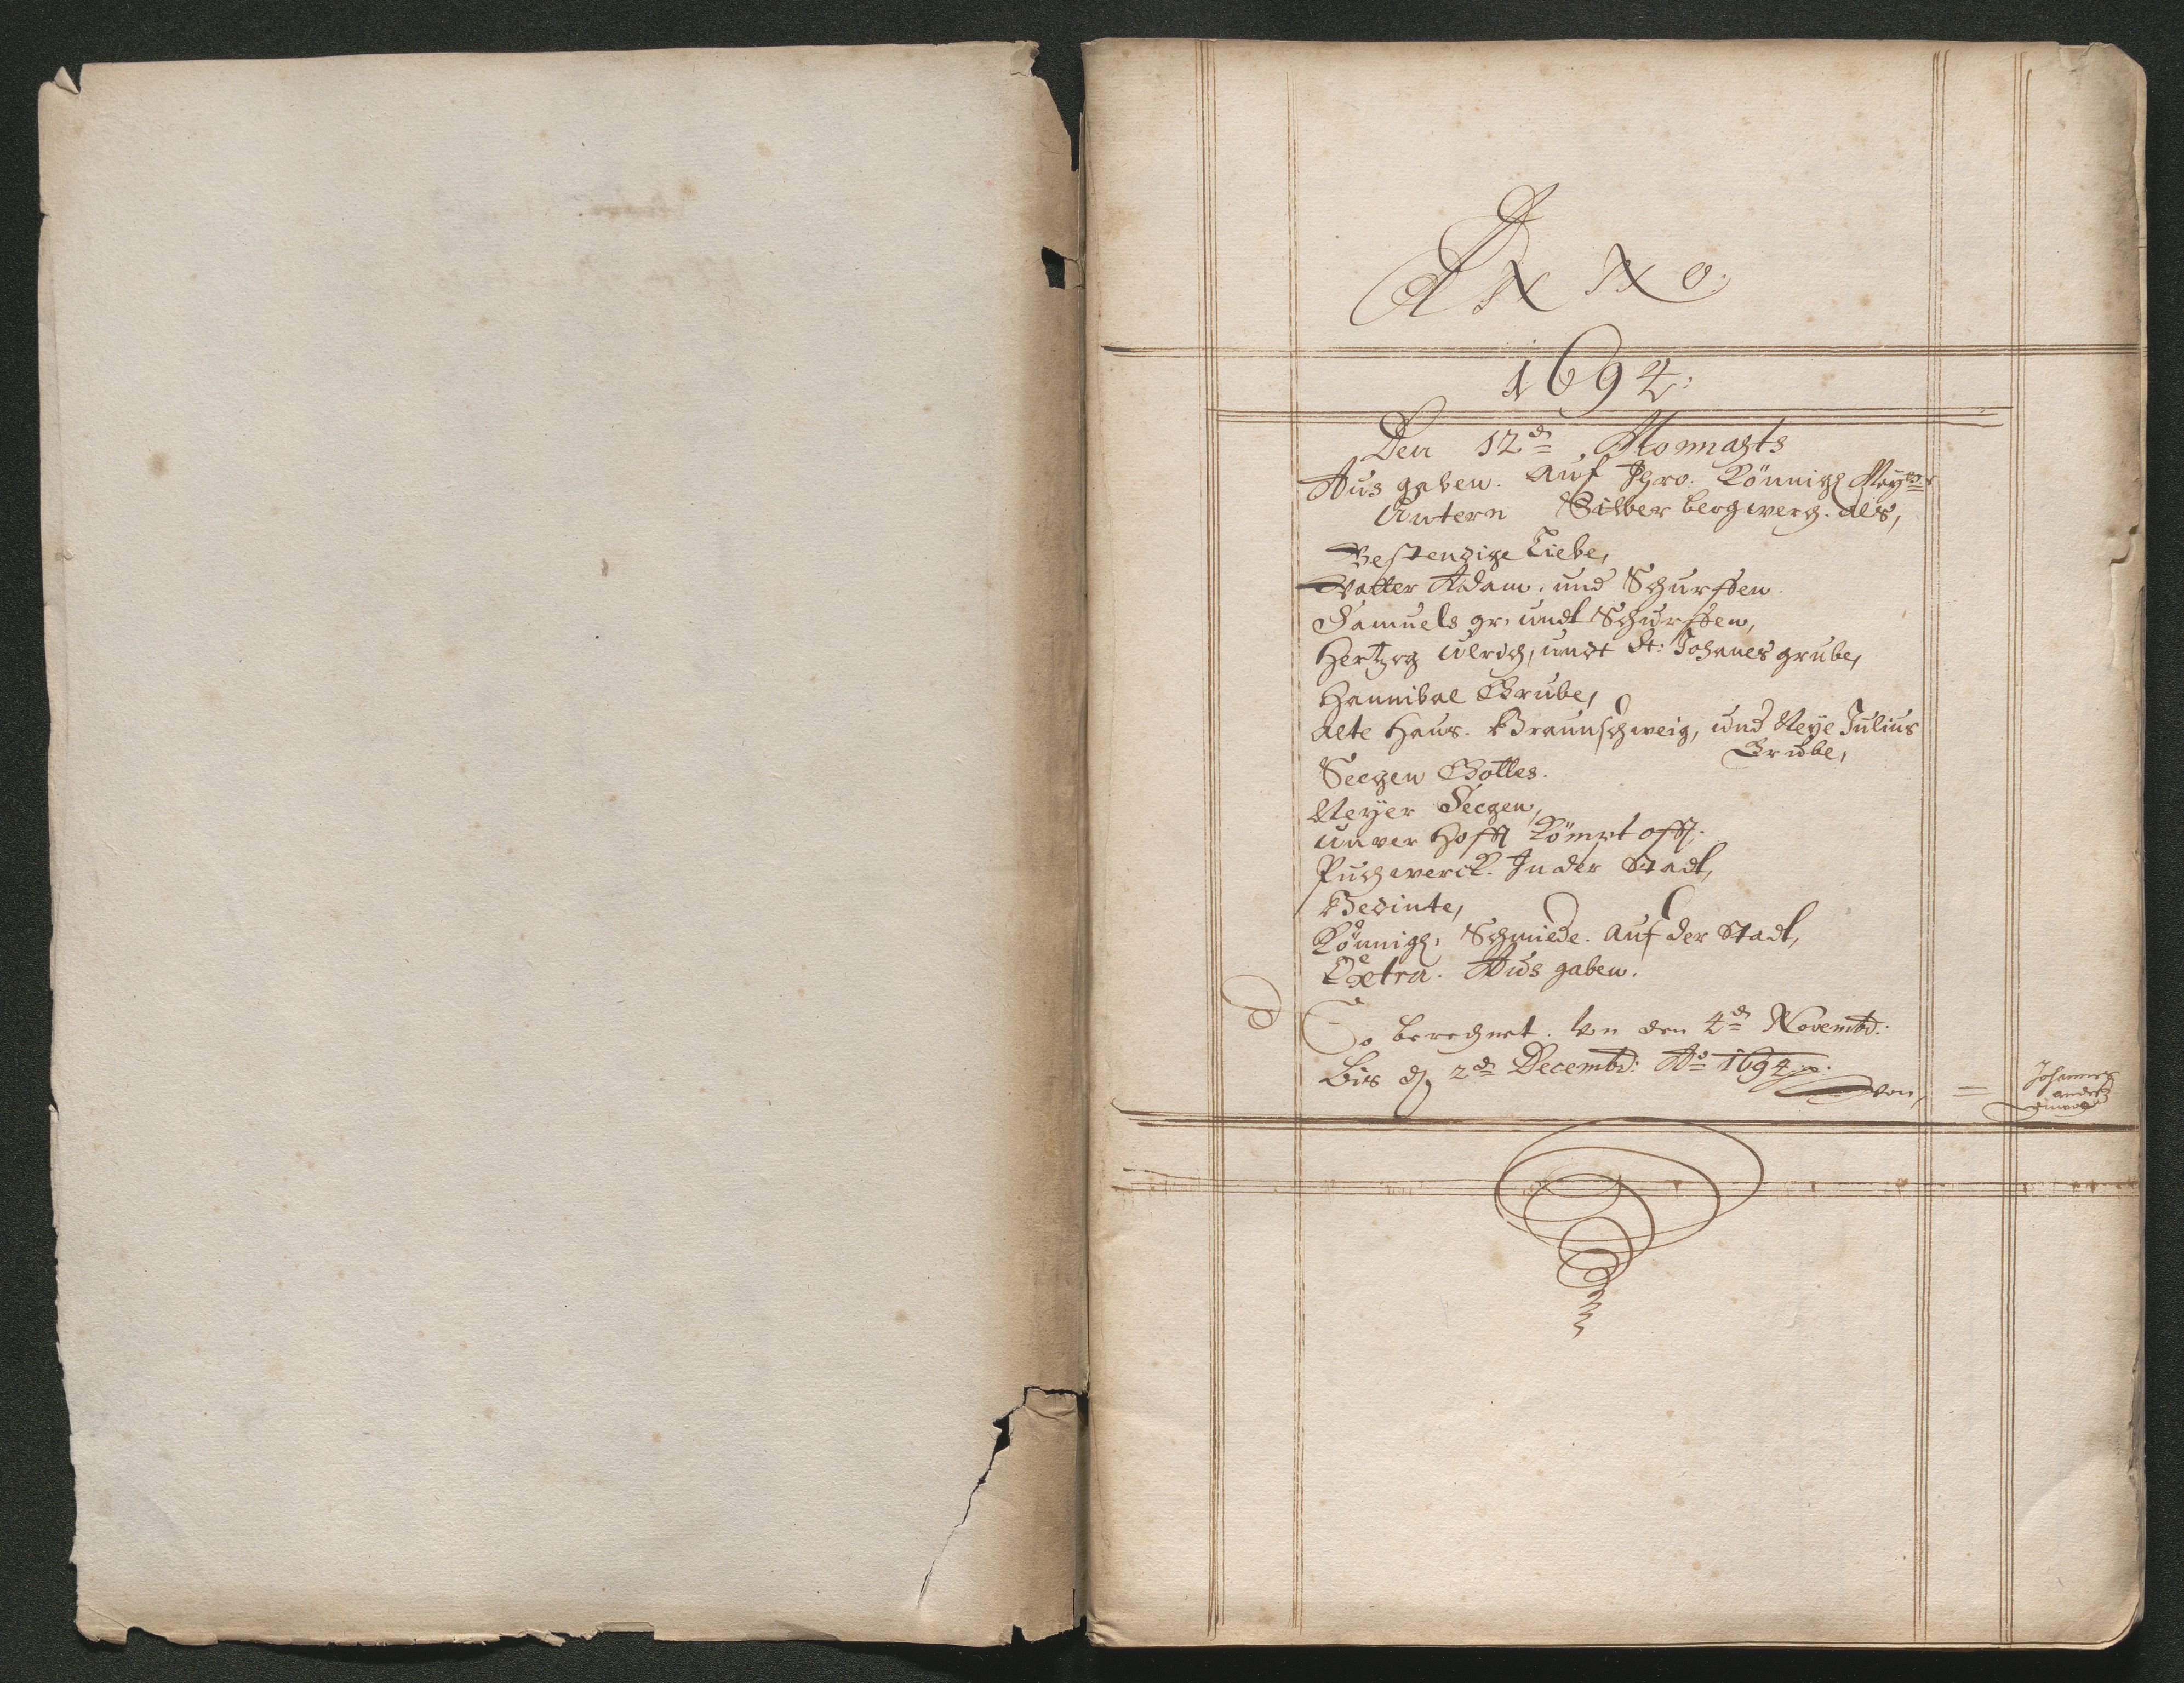 Anno.
1694:
Den 12d Monnahts
Aus gaben. auf Ihro. Könnigl May:
Untern Silber bergwerch. als,
Bestendige Liebe,
Vatter Adam. und Schurffen.
Samuels gr. undt Schurffen,
Hertzog Ulrich, undt St: Johanes grube,
Hannibal Grube,
Alte Haus. Braunschweig, und Neye Julius
Grube,
Seegen Gottes.
Neyer Seegen,
Unver Hofft Kömpt offt.
Puchwerck. In der Stadt,
Bediente,
Könnigl. Schmiede. Auf der Stadt,
Extra. Aus gaben.
So berechnet. Von den 4d Novembr:
Bis d. 2d Decembr: Ao 1694.
von,
Johannes